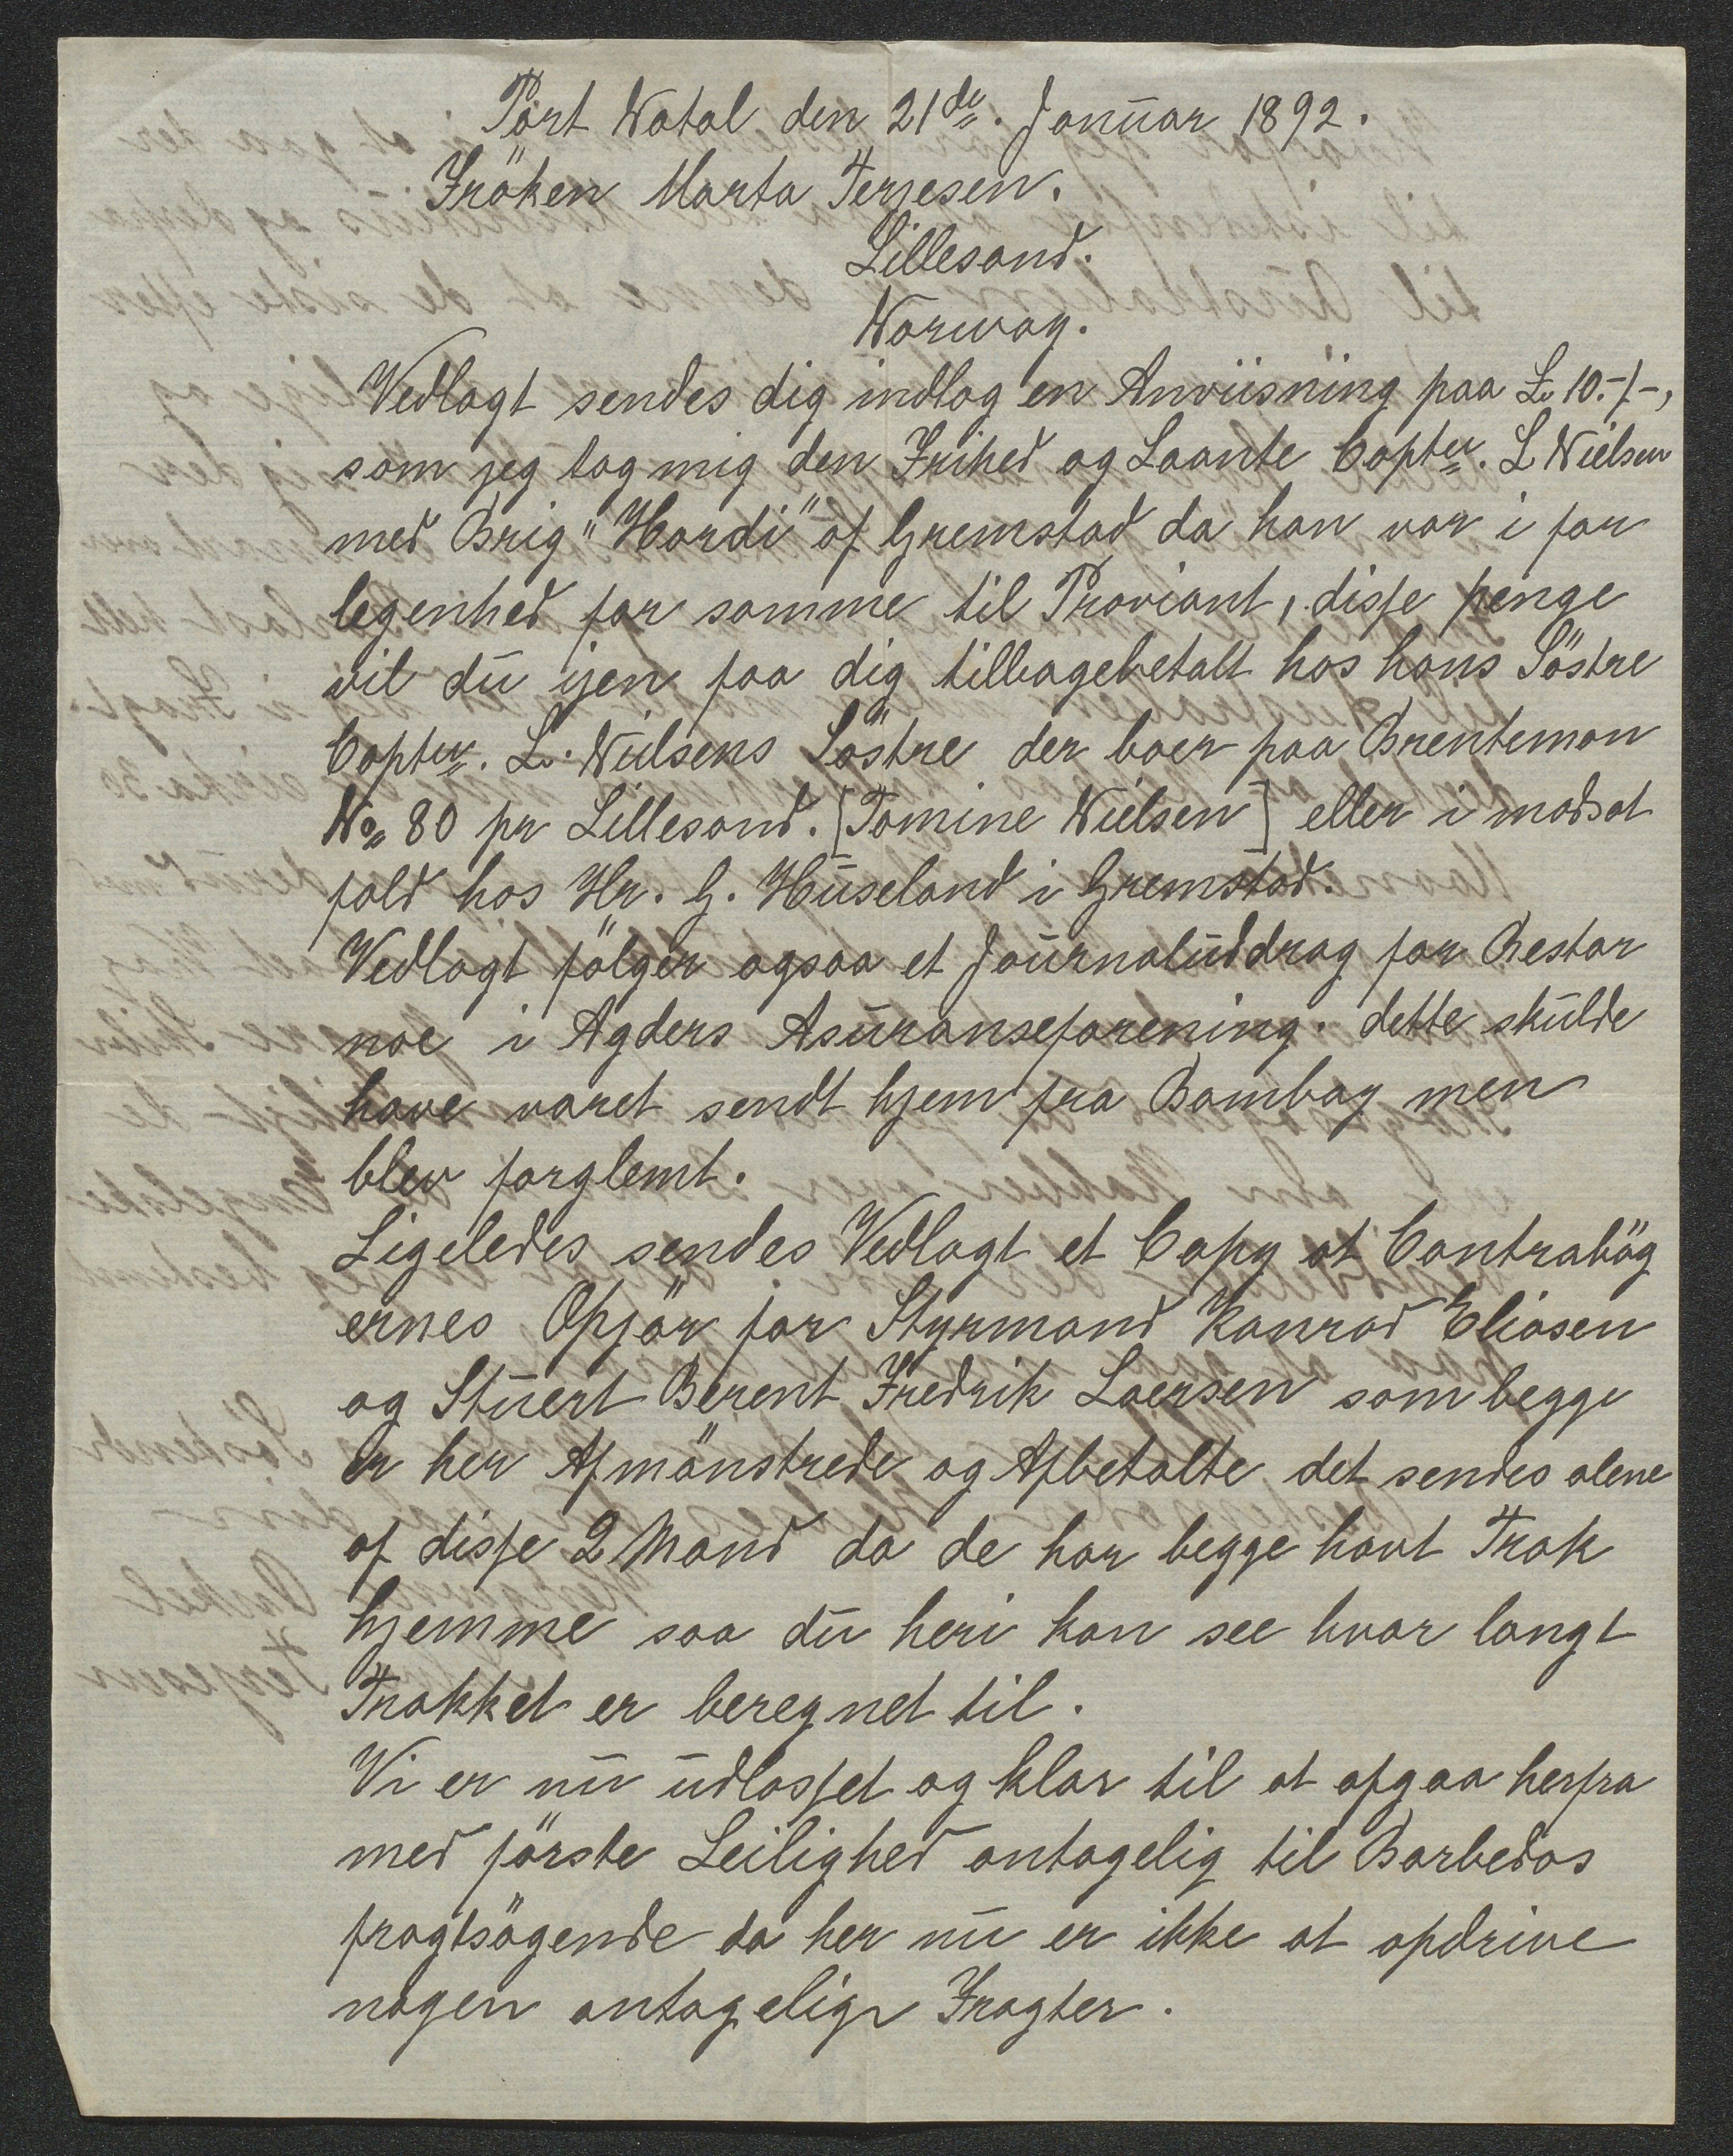 Port Natal den 21de. Januar 1892.
Fröken Marta Terjesen.
Lillesand.
Norway.
Vedlagt sendes dig indlag en Anviisning paa £ 10.-/-,
som jeg tog mig den Frihed og Laante Capten. L Nielsen
med Brig "Hardi" af Gremstad da han var i for
legenhed for somme til Proviant, disse penge
vil du ijen faa dig tilbagebetalt hos hans Söstre
Capten. L. Nielsens Söstre der boer paa Brentemon
No 80 pr Lillesand. [Tomine Nielsen] eller i modsat
fald hos Hr. G. Huseland i Gremstad.
Vedlagt fölger ogsaa et Journaluddrag for Bestar
noe i Agders Asuranseforening. dette skulde
have varet sendt hjem fra Bombay men
blev forglemt.
Ligeledes sendes Vedlagt et Copy at Contrabög
ernes Opjör for Styrmand Konrad Eliasen
og Stuert Berent Fredrik Laersen som begge
er her Afmönstrede og Afbetalte det sendes alene
af disse 2 Mand da de har begge havt Trak
hjemme saa du heri kan see hvor langt
Trakket er beregnet til.
Vi er nu udlosset og klar til at afgaa herfra
med förste Leilighed antagelig til Barbedos
fragtsögende da her nu er ikke at opdrive
nogen antagelige Fragter.